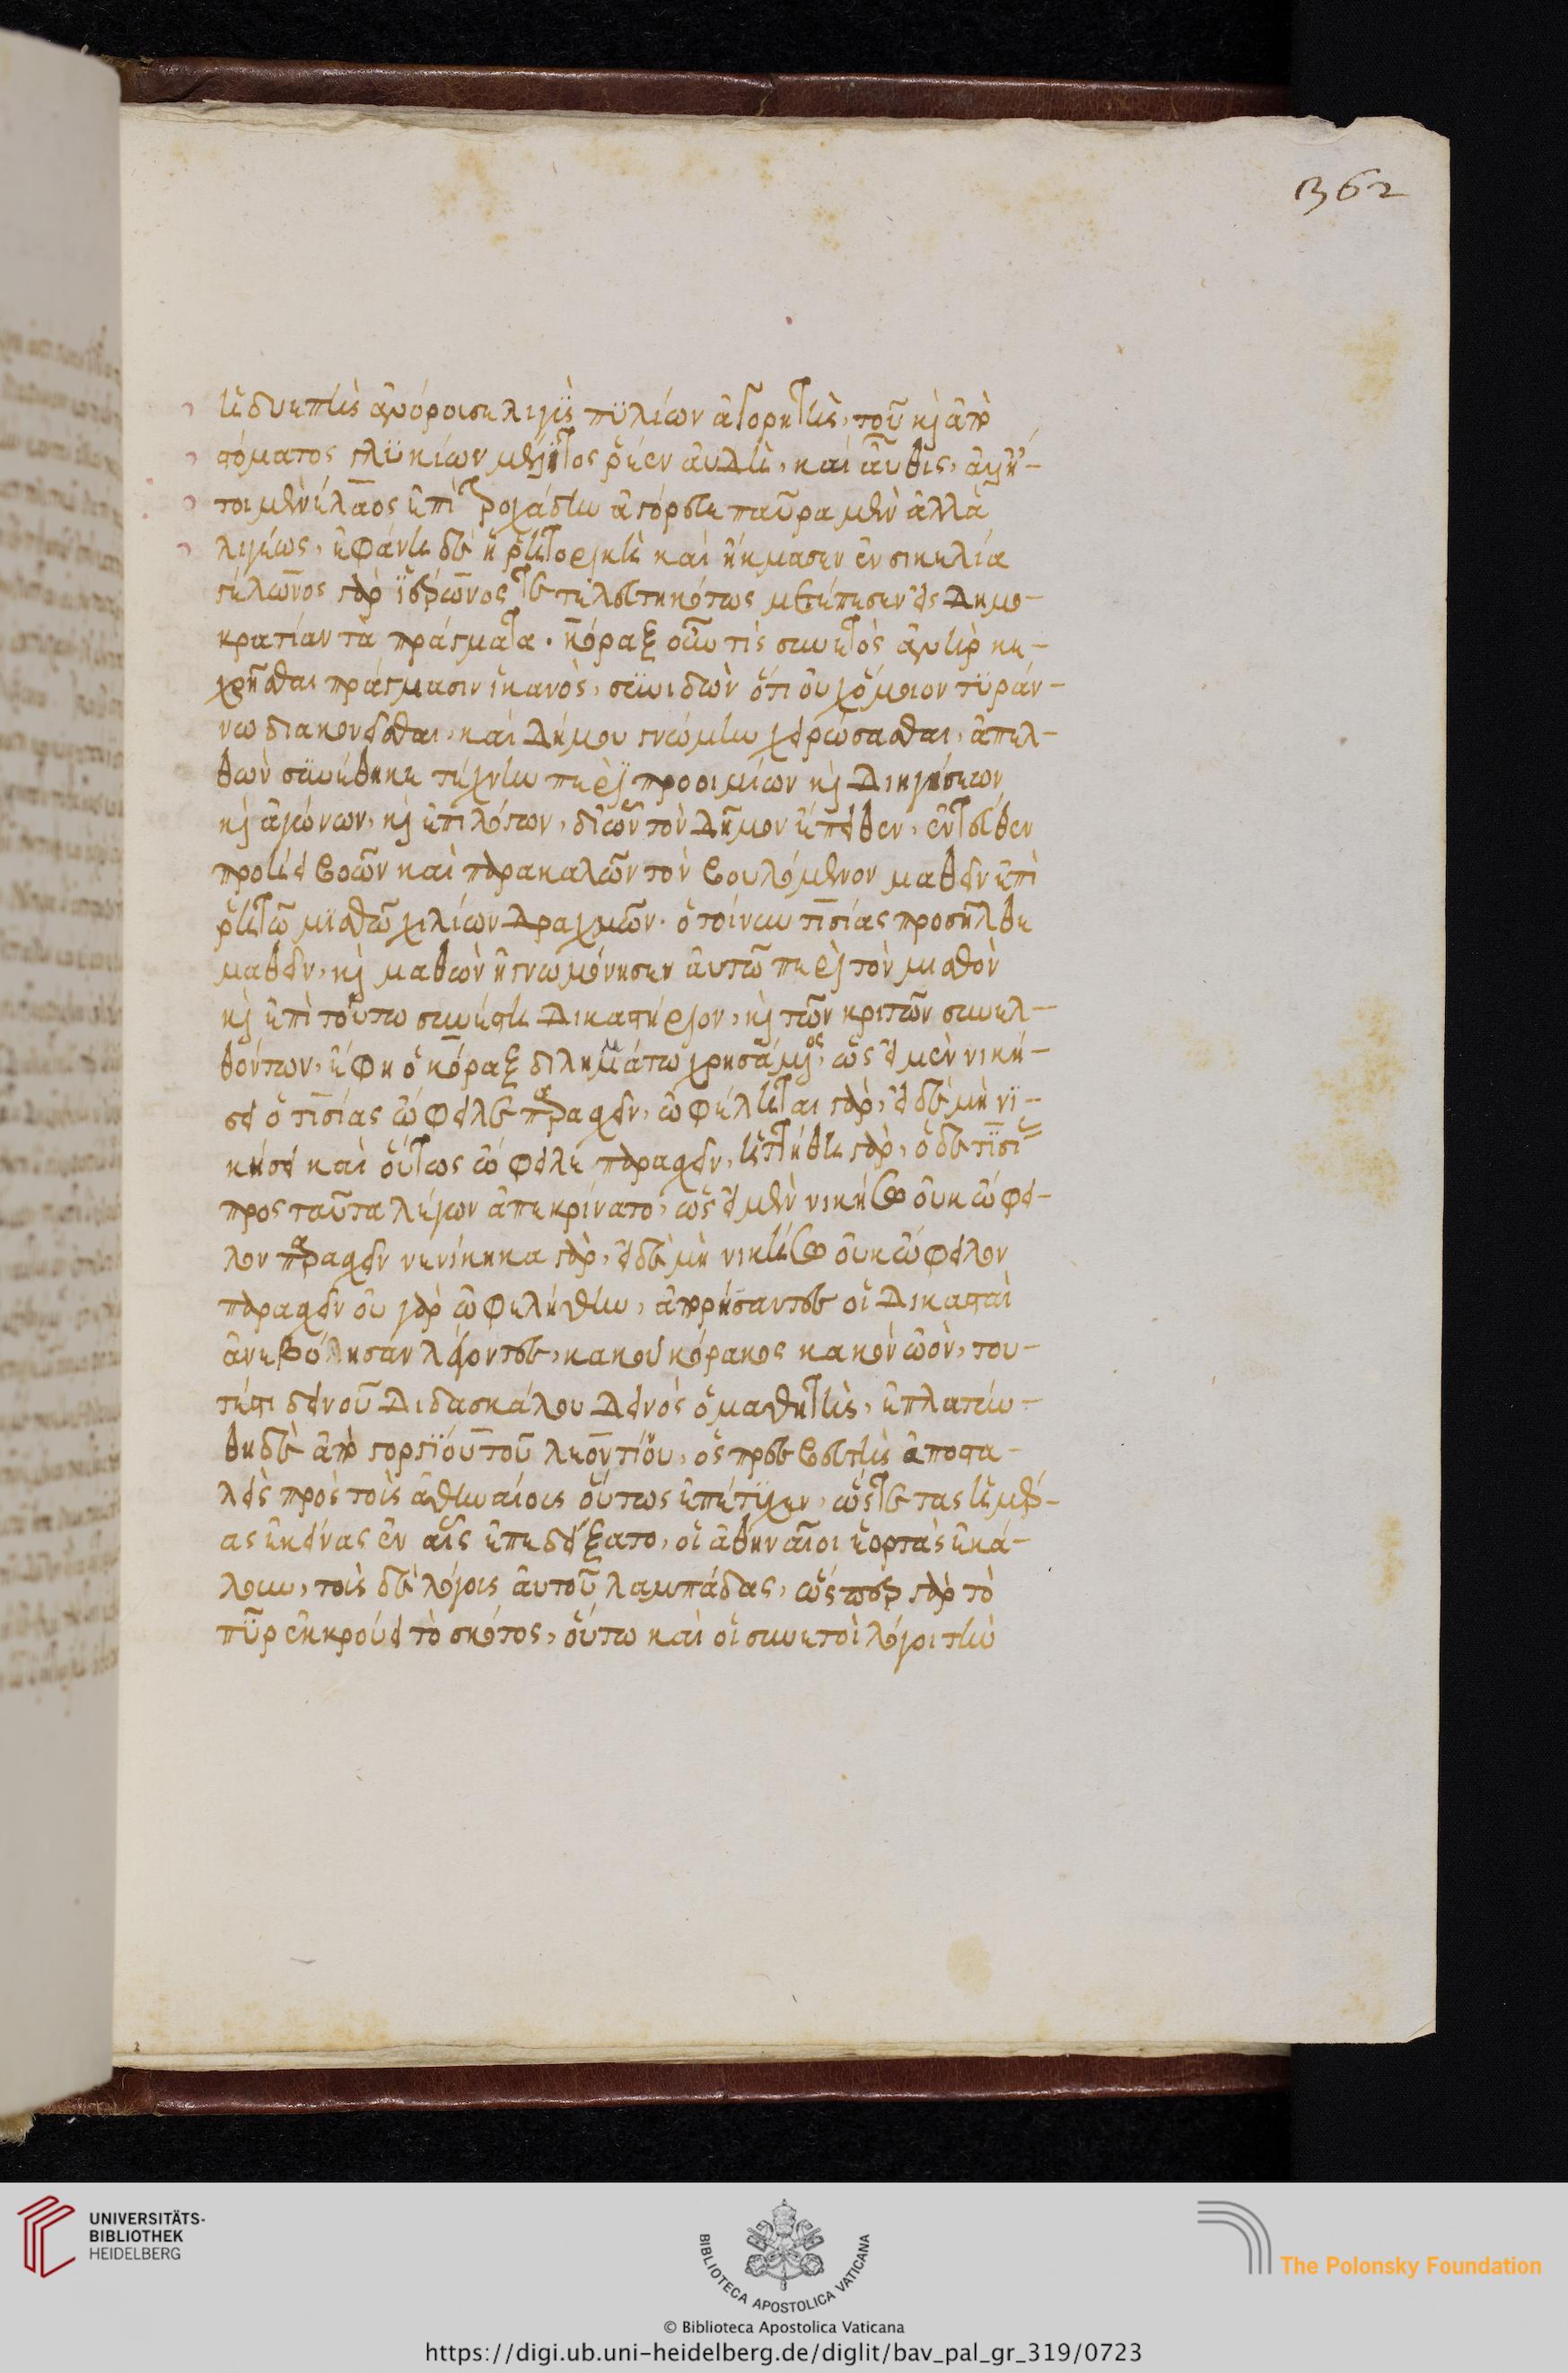 362
ἡδυεπὴς ἀνόρουσε λιγὺς πυλίων ἀγορητὴς, τοῦ κὶ ἀπὸ
στόματος γλυκίων μέλιτος ῥέεν ἀυδὴ, και ἂυθις, ἀλλ' ἤ-
τοι μὲν μενέλαος ἐπὶ τροχάδην ἀγόρευε παῦρα μὲν ἀλλὰ
λιγέως, ἐφάνη δὲ ἡ ῥητορικὴ καὶ ἤκμασεν ἐν σικελία
γέλωνος γὰρ ἱέρωνος τε τελευτηκότως μετέπεσεν εἰς δημο-
κρατίαν τὰ πράγματα. κόραξ οὖν τίς συνετὸς ἀνὴρ κε-
χρῆσθαι πράγμασιν ἱκανὸς, συνιδὼν ὅτι οὐχ ὅμοιον τυράν-
νω διακονεῖσθαι, και δήμου γνώμην χειρώσασθαι, ἀπελ-
θὼν συνέθηκε τέχνην περὶ προοιμίων κὶ διηγήσεων
κὶ ἀγώνων, κὶ ἐπιλόγων, δι' ὧν τὸν δῆμον ἔπειθεν, ἐντεῦθεν
προήει βοῶν καὶ παρακαλῶν τὸν βουλόμενον μαθεῖν ἐπὶ
ῥητῶ μισθῶ χιλίων δραχμῶν. ὁ τοίνυν τισίας προσῆλθε
μαθεῖν, κὶ μαθὼν ἠγνωμόνησεν ἀυτῶ περὶ τὸν μισθὸν
κὶ ἐπὶ τούτω συνέστη δικαστήριον, κὶ τῶν κριτῶν συνελ-
θόντων, ἔφη ὁ κόραξ διλημμάτω χρησάμενος, ὡς εἰ μὲν νική-
σει ὁ τισίας ὤφειλε παρασχεῖν, ὠφέληται γὰρ, εἰ δὲ μὴ νι-
κήσει καὶ οὕτως ὤφειλε παρασχεῖν, ἡττήθη γὰρ, ὁ δὲ τισί
προς ταῦτα λέγων ἀπεκρίνατο, ὡς εἰ μὲν νικήσω οὐκ ὤφει-
λον παρασχεῖν νενίκηκα γὰρ, εἰ δὲ μὴ νικήσω οὐκ ὤφειλον
παρασχεῖν οὐ γὰρ ὠφελήθην, ἀπορήσαντες οἱ δικασταὶ
ἀνεβόλησαν λέγοντες, κακοῦ κόρακος κακὸν ὠὸν, του-
τέστι δεινοῦ διδασκάλου δεινὸς ὁ μαθητὴς, ἐπλατύν-
θη δὲ ἀπὸ γοργίου τοῦ λεοντίου, ὃς πρεσβευτὴς ἀποστα-
λεὶς πρὸς τοὶς ἀθηναίοις οὕτως ἐπέτυχεν, ὥς τε τας ἡμέρ-
ας ἐκείνας ἐν αἷς ἐπεδείξατο, οἱ ἀθηναῖοι ἑορτὰς ἐκά-
λουν, τοὶς δὲ λόγοις ἀυτοῦ λαμπάδας, ὥς περ γὰρ τὸ
πῦρ ἐκκρούει τὸ σκότος, οὕτω καὶ οἱ συνετοὶ λόγοι τὴν
UNIVERSITÄTS-
BIBLIOTHEK
HEIDELBERG
BIBLIOTECA APOSTOLICA VATICANA
The Polonsky Foundation
© Biblioteca Apostolica Vaticana
https://digi.ub.uni-heidelberg.de/diglit/bav_pal_gr_319/0723